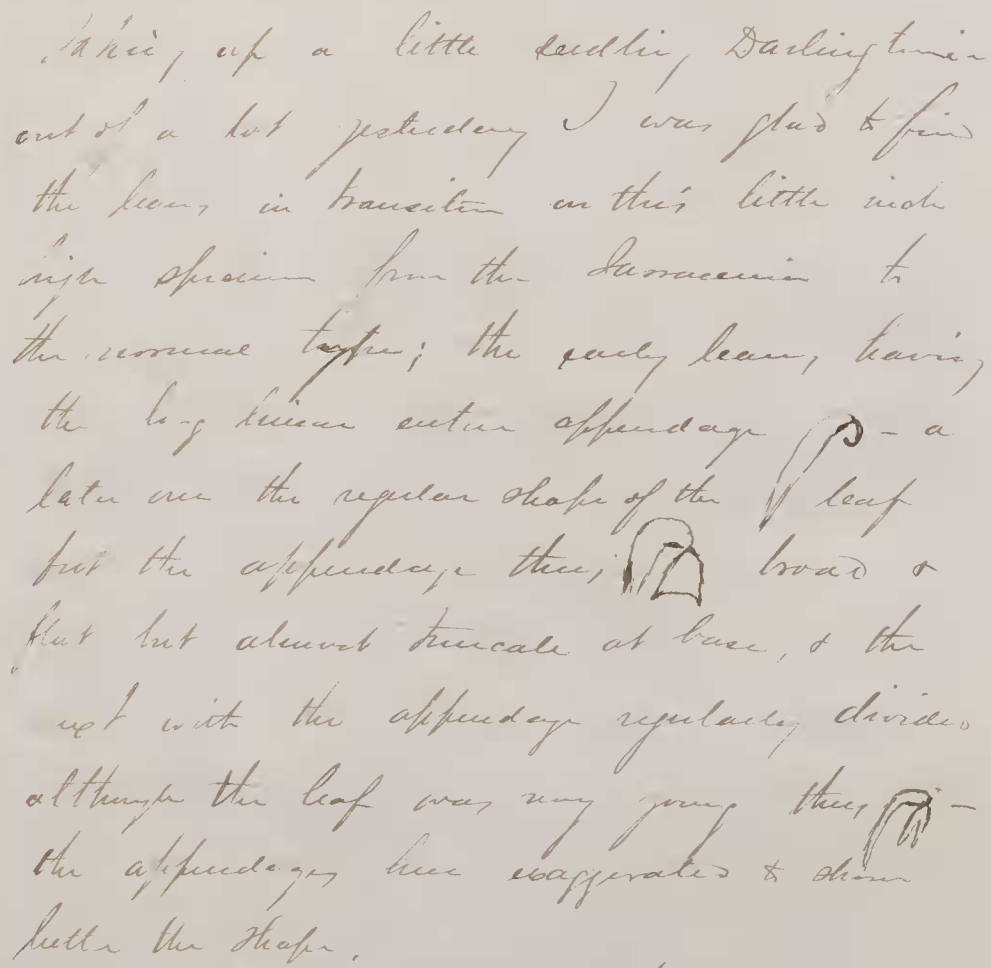 Taking up a little seedling Darlingtonia
out of a lot yesterday I was glad to find
the leaves in transition on this little inch
high specimen from the Sarracenia to
the normal type; the early leaves having
the long linear entire appendage — a
later one the regular shape of the leaf
but the appendage thus broad &
flat but almost truncate at base, & the
next with the appendage regularly divided
although the leaf was very young thus —
the appendages here exaggerated to show
better the shape.